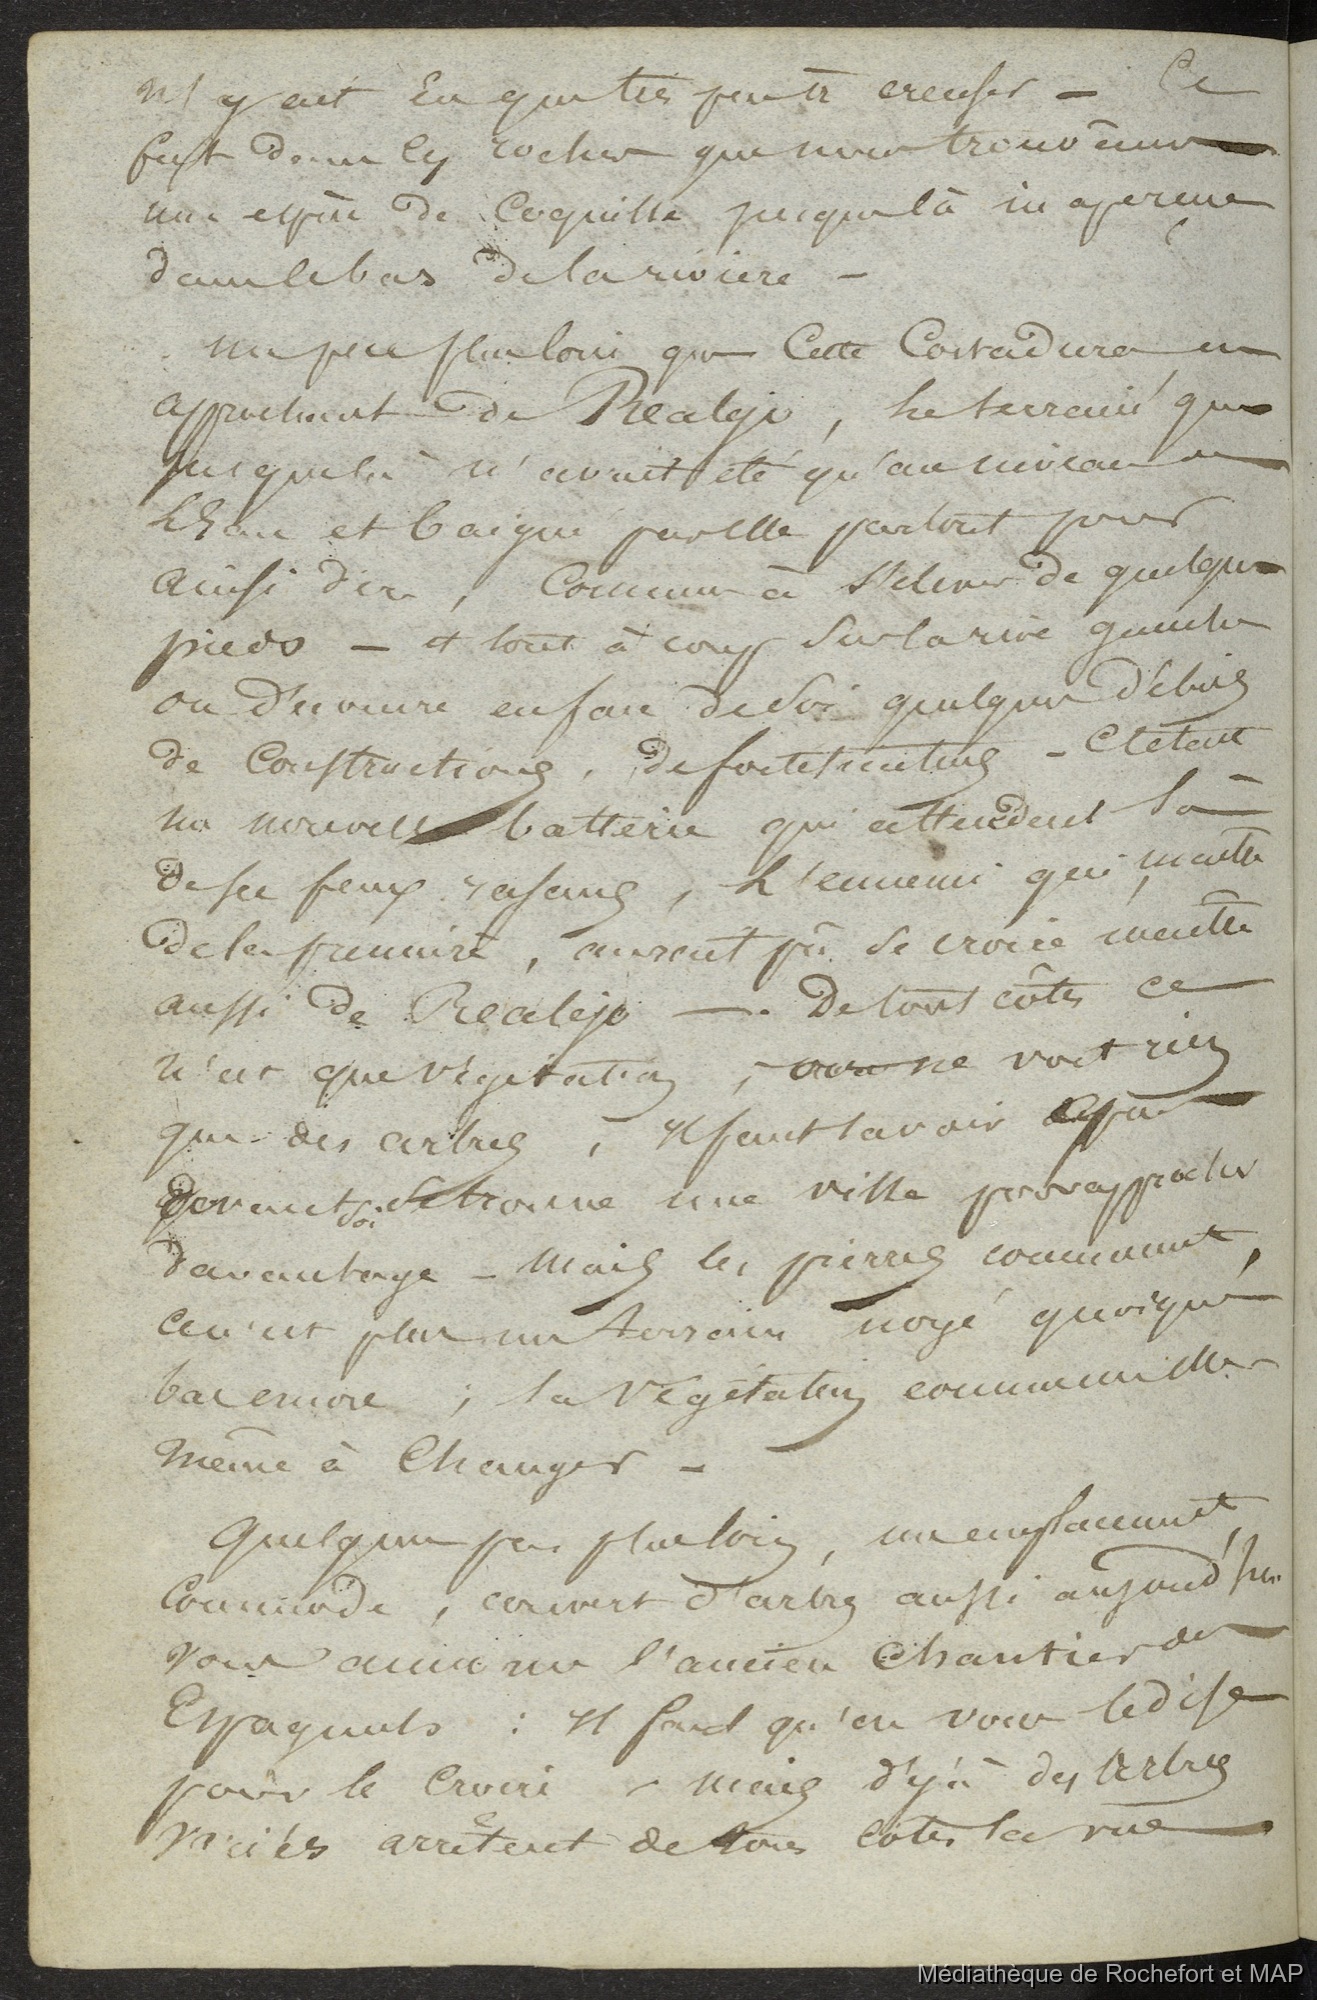 n'y ait eu que très peu à creuser — Ce
fut dans les rochers que nous trouvâmes
une espèce de Coquille jusque là inaperçue
dans le bas de la rivière —
un peu plus loin que Cette Costadura en
approchant de Realejo, le terrain que
jusque là n'avait été qu'au niveau de
L'Eau et baigné par elle partout pour
ainsi dire, Commence à s'élever de quelques
pieds — et tout à coup sur la rive gauche
on découvre en face de soi quelques débris
de Constructions, de fortifications — C'était
une nouvelle batterie qui attendait là
de ses feux rasans, L'ennemi qui, maître
de la première, aurait pû se croire maître
aussi de Realejo —. De tous côtés ce
n'est que végétation, on ne voit rien
que des arbres, il faut savoir que
devant soi se trouve une ville pour approcher
davantage — Mais les pierres commencent,
ce n'est plus un terrain noyé quoique
bas encore; la végétation commence elle
même à Changer —
Quelques pas plus loin, un emplacement
Commode, couvert d'arbres aussi aujourd'hui
vous annonce l'ancien Chantier des
Espagnols : il faut qu'on vous le dise
pour le Croire, mais déjà des Arbres
variés arrêtent de tous côtés la vue
Médiathèque de Rochefort et MAP